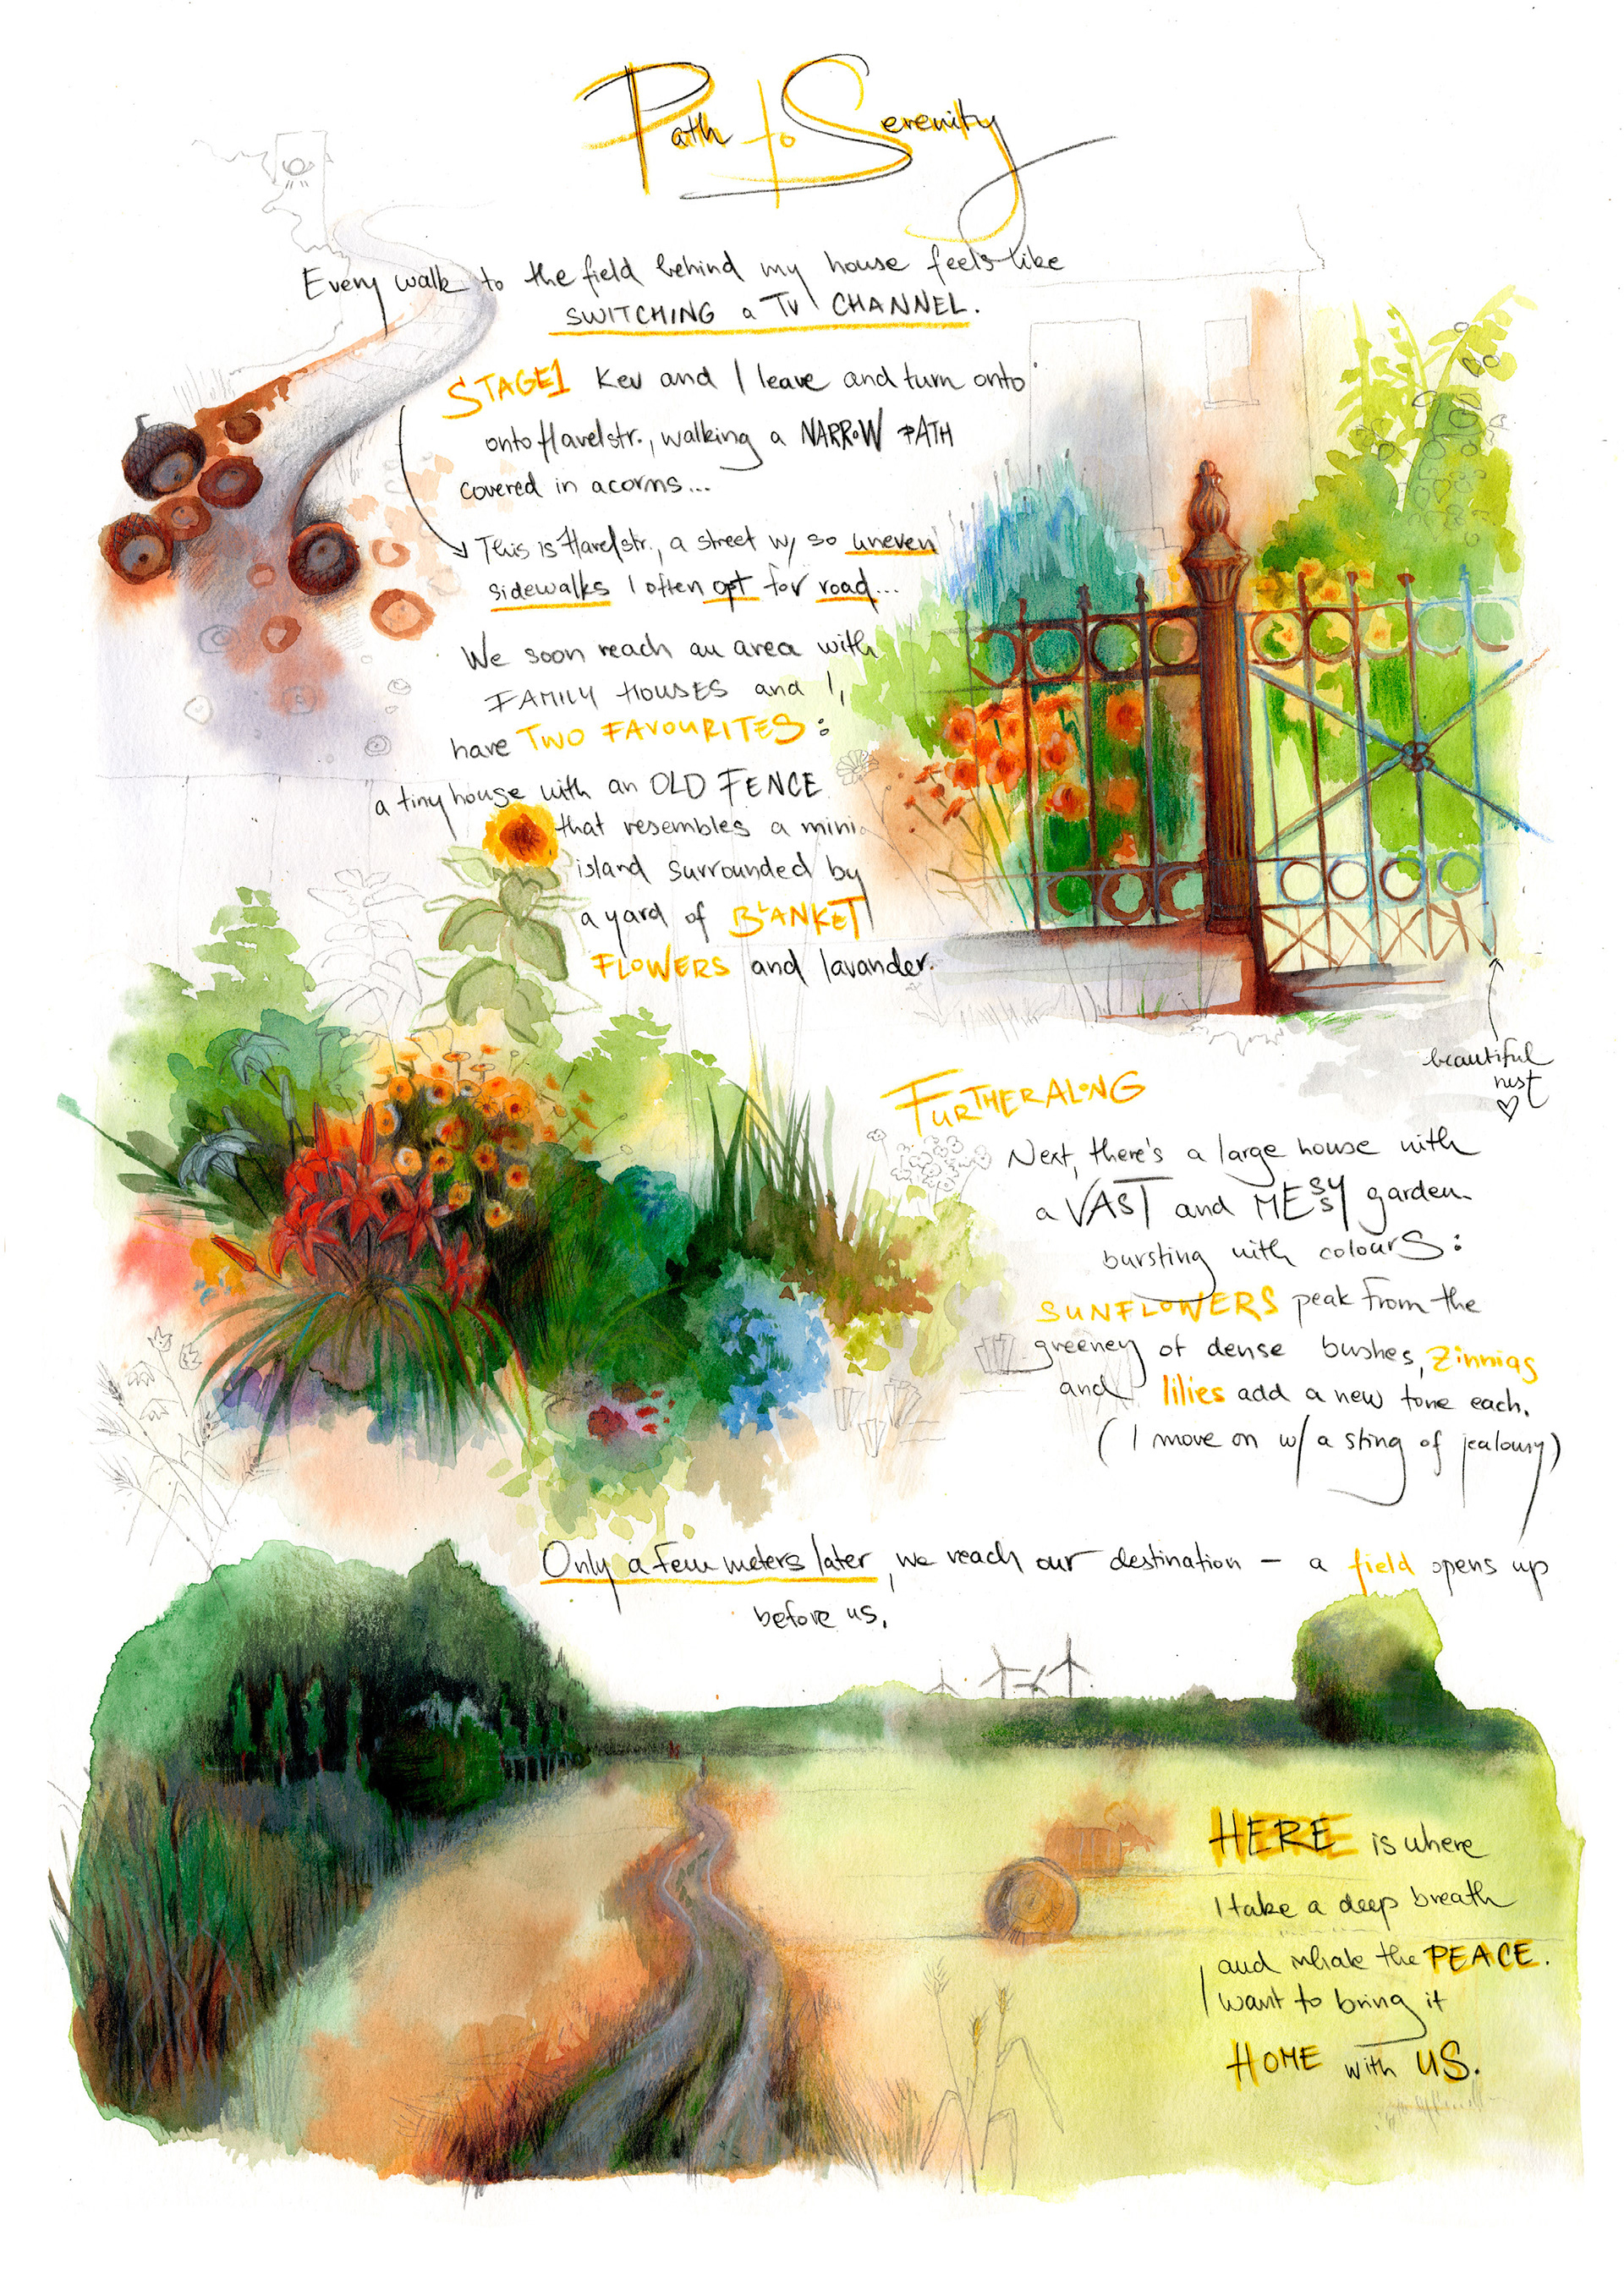 Path to Serenity
Every walk to the field behind my house feels like
SWITCHING a TV CHANNEL.
STAGE1 Kev and I leave and turn onto
onto Havelstr., walking a NARROW PATH
covered in acorns...
This is Havelstr., a street w/ so uneven
sidewalks I often opt for road...
We soon reach an area with
FAMILY HOUSES and I,
have TWO FAVOURITES:
a tiny house with an OLD FENCE
that resembles a mini
island surrounded by
a yard of BLANKET
FLOWERS and lavander.
beautiful
rust
FURTHER ALONG
Next, there's a large house with
a VAST and MESSY garden
bursting with colours:
SUNFLOWERS peak from the
greeney of dense bushes, Zinnias
and lilies add a new tone each.
(I move on w/ a sting of jealousy)
Only a few meters later, we reach our destination - a field opens up
before us.
HERE is where
I take a deep breath
and inhale the PEACE.
I want to bring it
HOME with US.